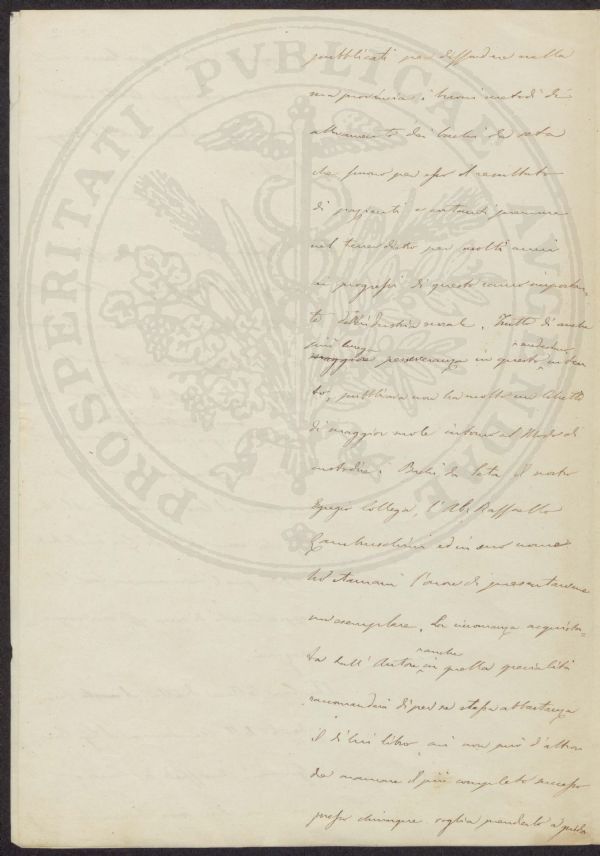 PROSPERITATI PUBLICAE AUGENDAE
pubblicati per diffondere nella
sua provincia i buoni metodi di
allevamento dei bachi da seta
che furono per esso il resultato
di pazienti e costanti premure
nel tener dietro per molti anni
ai progressi di questo ramo importan-
te dell'industria rurale. Frutto di anche
più lunga medesimo
maggiore perseveranza in questo inten
to, pubblicava non ha molto un libretto
di maggior mole intorno al Modo di
custodire i Bachi da Seta il nostro
Egregio Collega, l'Ab. Raffaello
Lambruschini ed in suo nome
ho stamani l'onore di presentarvene
un esemplare. La rinomanza acquista-
ta dall'Autore anche in questa specialità
raccomanda di per se stessa abbastanza
il di lui libro, cui non può d'altron
de mancare il più completo successo
presso chiunque voglia prenderlo a guida